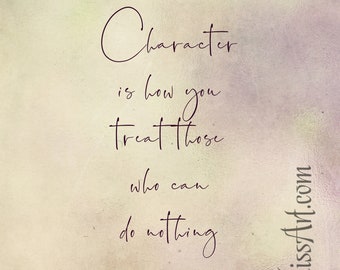 Character
is how you
treat those
who can
do nothing
issArt.com